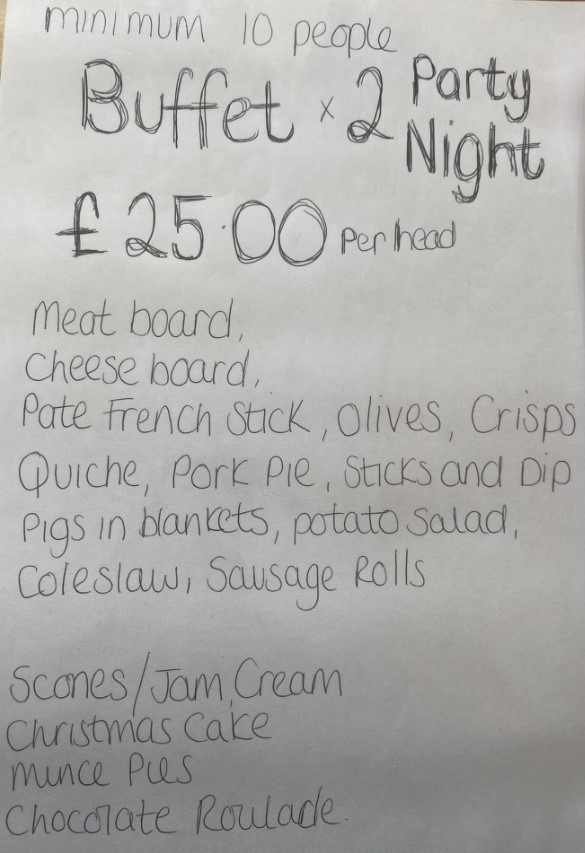 minimum 10 people
Buffet x 2 Party Night
£25.00 Per head
Meat board,
Cheese board,
Pate French Stick, Olives, Crisps
Quiche, Pork Pie, Sticks and Dip
Pigs in blankets, potato Salad,
Coleslaw, Sausage Rolls
Scones/Jam, Cream
Christmas Cake
Mince Pies
Chocolate Roulade.